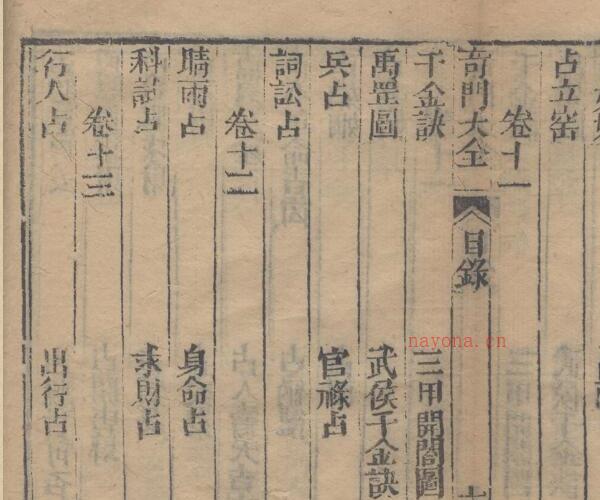 占立窑
卷十一
奇門大全 目錄
千金訣 三甲開闔圖
禹罡圖 武侯千金訣
兵占 官祿占
詞訟占
卷十二
晴雨占 身命占
科試占 求財占
卷十三
行人占 出行占
nayona.cn